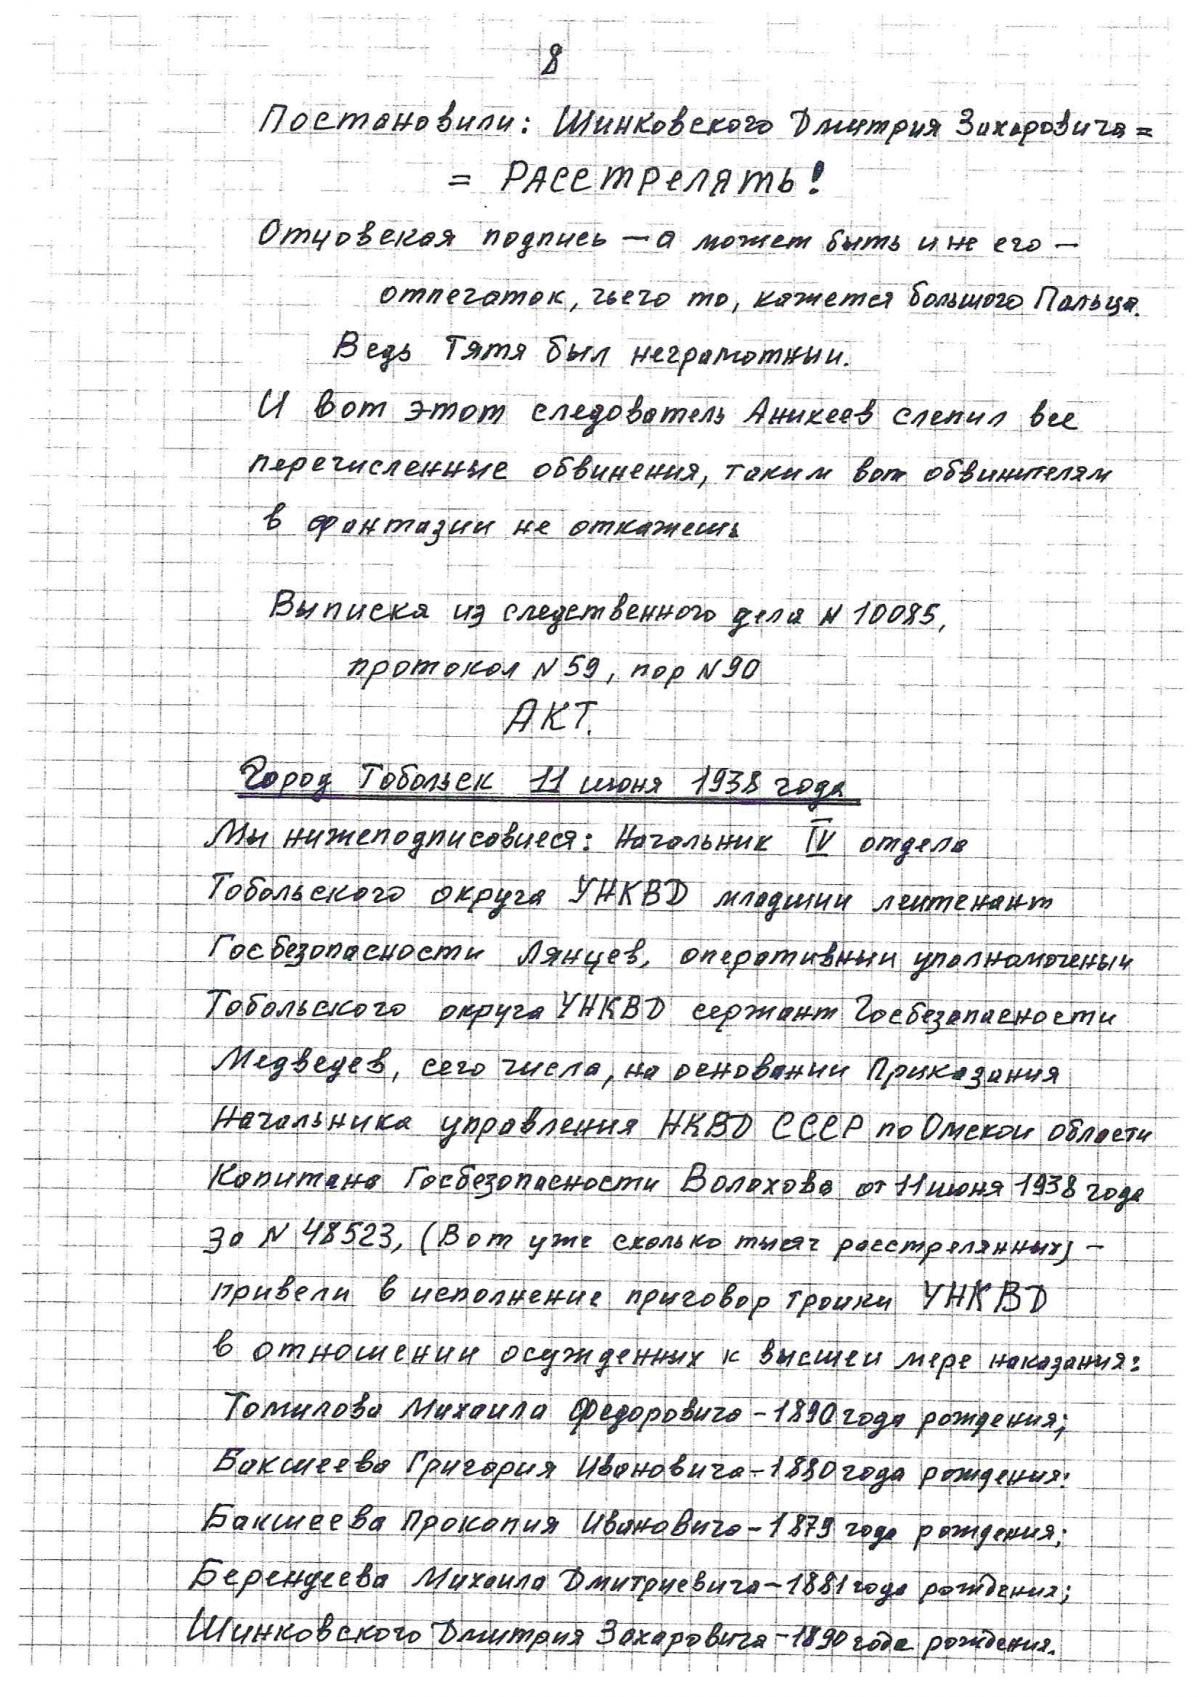 8
Постановили: Шинковского Дмитрия Захаровича =
= РАССТРЕЛЯТЬ!
Отцовская подпись — а может быть и не его —
отпечаток, чьего то, кажется большого Пальца.
Ведь Тятя был неграмотныи.
И вот этот следователь Аникеев слепил все
перечисленные обвинения, таким вот обвинителям
в фантазии не откажешь
Выписка из следственного дела N 10085,
протокол N 59, пор N 90
АКТ.
Город Тобольск 11 июня 1938 года
Мы нижеподписовшеся: Начальник IV отдела
Тобольского округа УНКВД младшии леитенант
Госбезопасности Лянцев, оперативныи уполномоченыи
Тобольского округа УНКВД сержант Госбезапасности
Медведев, сего числа, на основании Приказания
Начальника управления НКВД СССР по Омскои области
Капитана Госбезопасности Волохова от 11 июня 1938 года
за N 48523, (Вот уже сколько тысяч расстрелянных) —
привели в исполнение приговор троики УНКВД
в отношении осужденных к высшеи мере наказания:
Томилова Михаила Федоровича - 1890 года рождения;
Бакшеева Григория Ивановича - 1880 года рождения:
Бакшеева Прокопия Ивановича - 1879 года рождения;
Берендеева Михаила Дмитриевича - 1881 года рождения;
Шинковского Дмитрия Захаровича - 1890 года рождения.